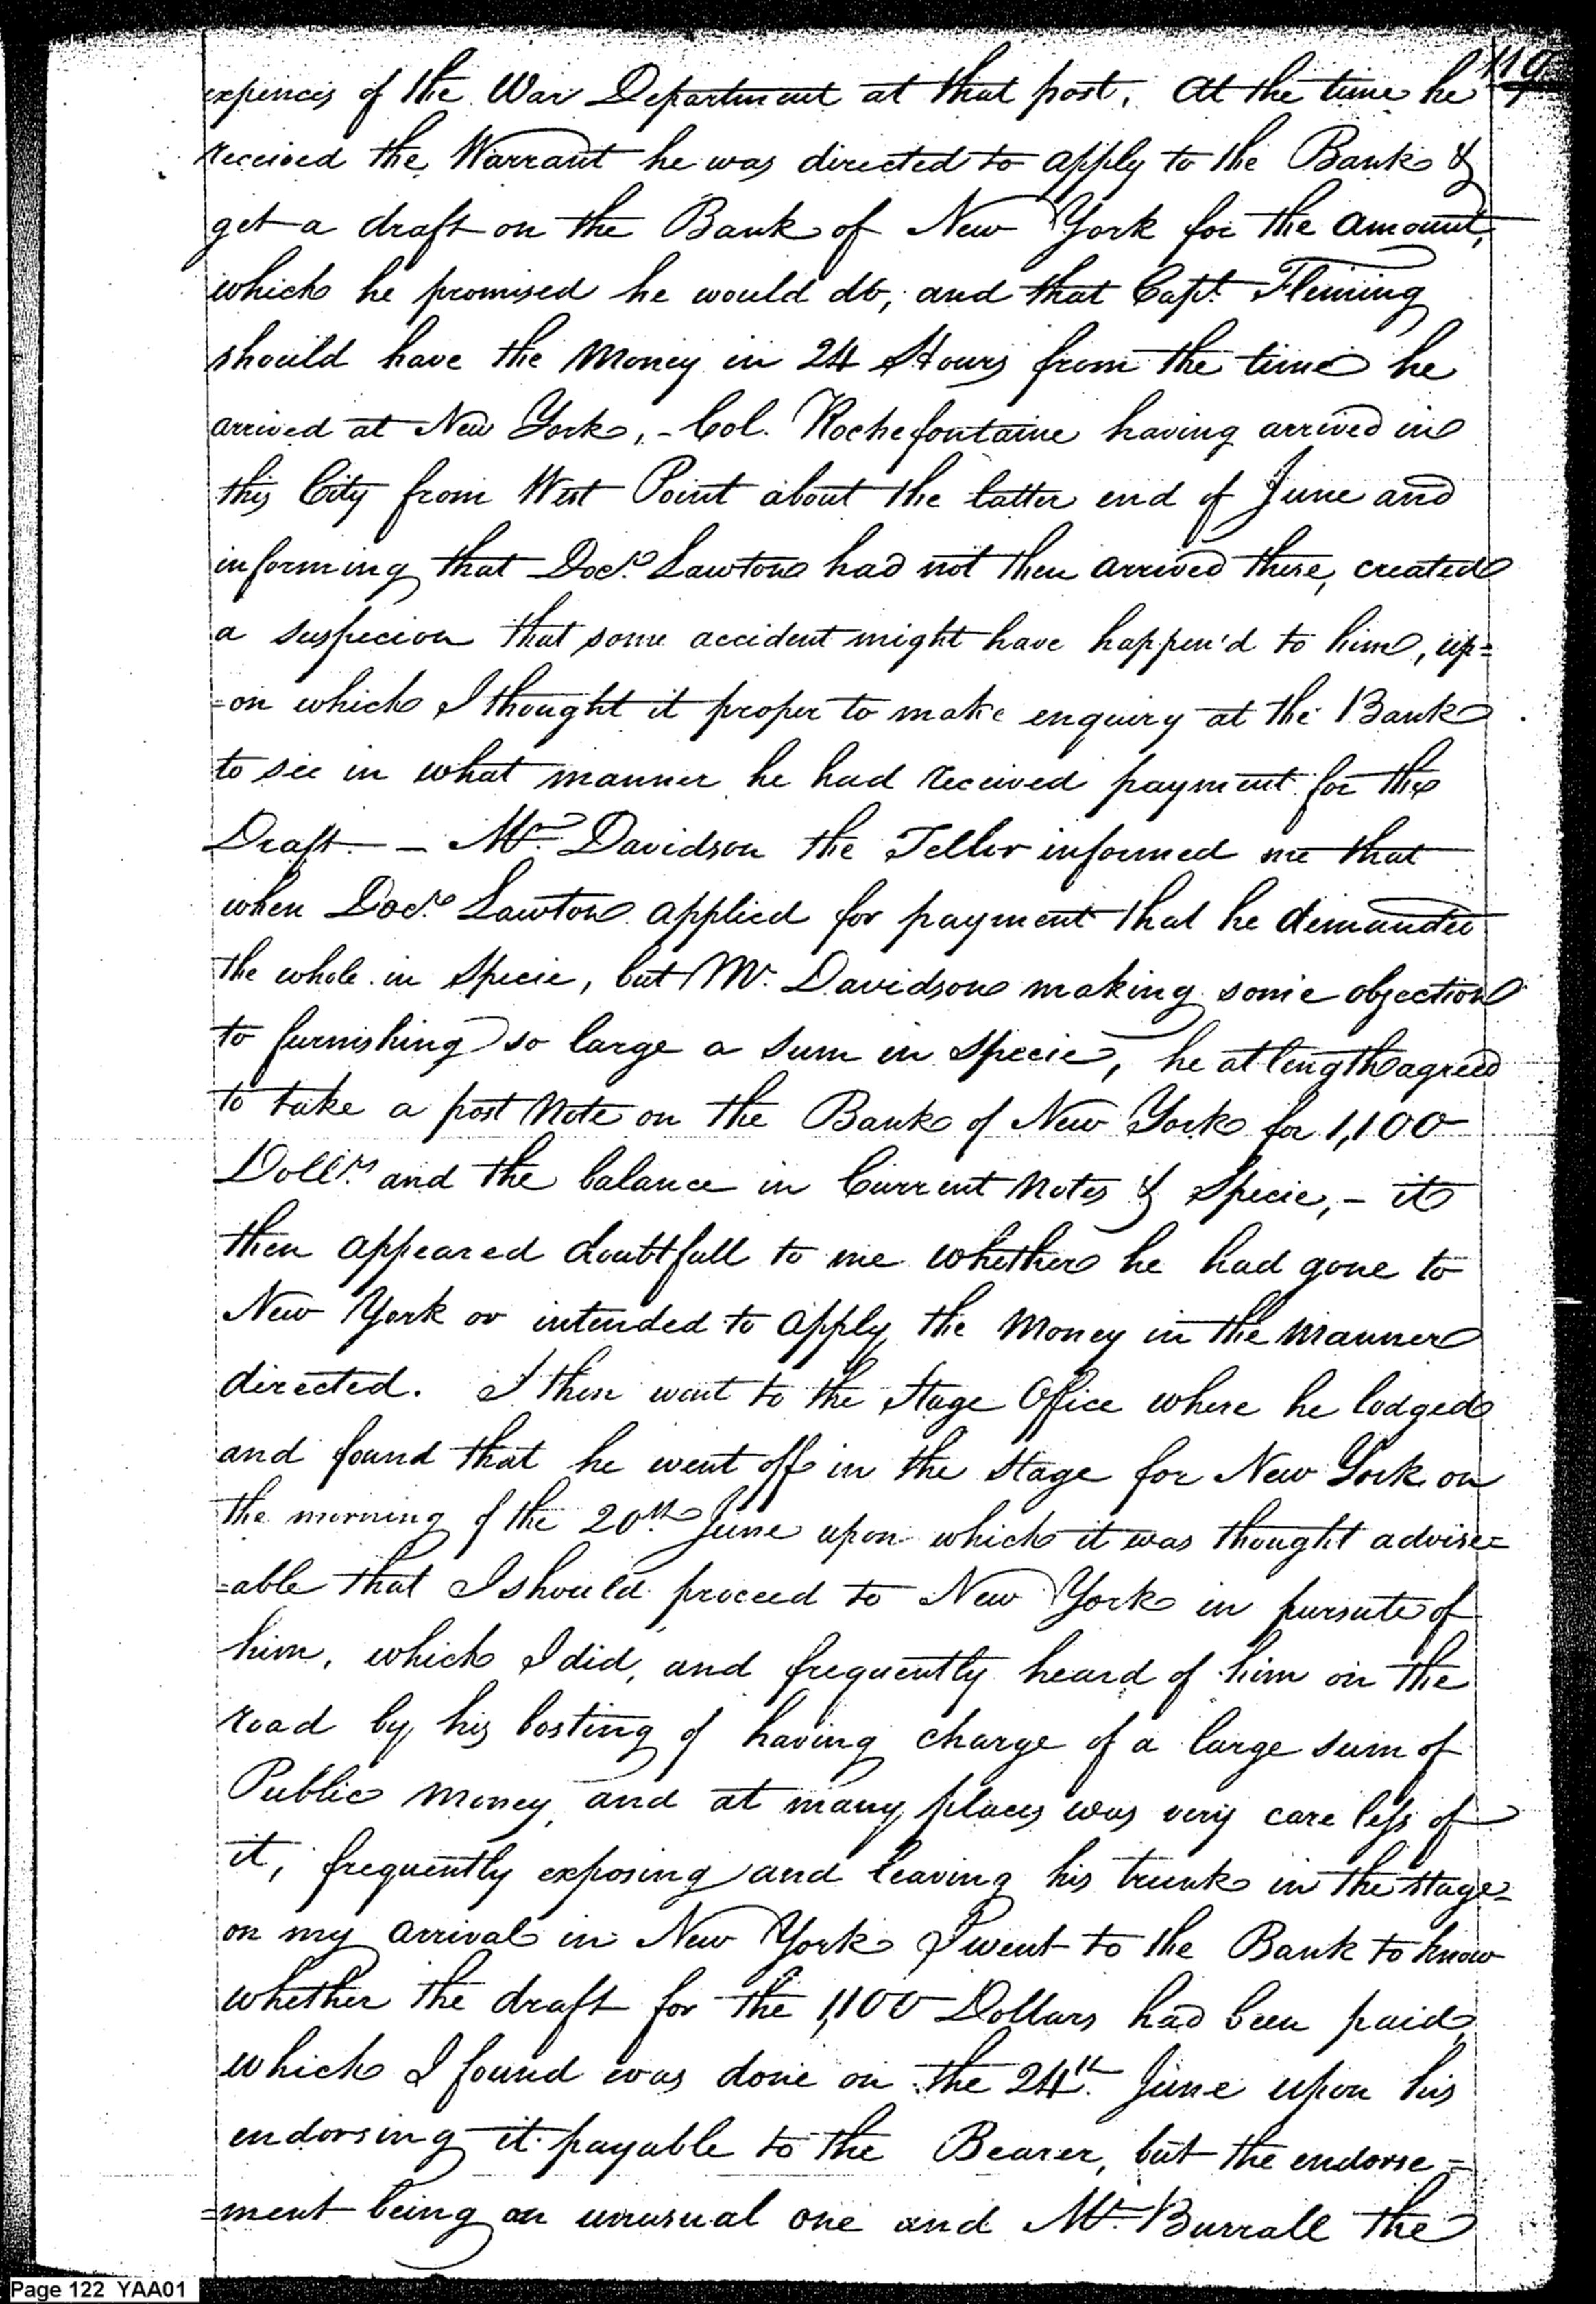 119
expences of the War Department at that post. At the time he
received the Warrant he was directed to apply to the Bank &
get a draft on the Bank of New York for the amount,
which he promised he would do, and that Capt. Fleming
should have the Money in 24 Hours from the time he
arrived at New York, - Col. Rochefontaine having arrived in
this City from West Point about the latter end of June and
informing that Docr. Lawton had not then arrived there, created
a suspecion that some accident might have happen'd to him, up=
=on which I thought it proper to make enquiry at the Bank
to see in what manner he had received payment for the
Draft. - Mr. Davidson the Teller informed me that
when Docr. Lawton applied for payment that he demanded
the whole in Specie, but Mr. Davidson making some objection
to furnishing so large a sum in Specie, he at length agreed
to take a post Note on the Bank of New York for 1,100
Dollrs. and the balance in Current Notes & Specie, - it
then appeared doubtfull to me whether he had gone to
New York or intended to apply the Money in the manner
directed. I then went to the Stage Office where he lodged
and found that he went off in the Stage for New York on
the morning of the 20th. June upon which it was thought advise=
=able that I should proceed to New York in pursute of
him, which I did, and frequently heard of him on the
road by his bosting of having charge of a large sum of
Public Money, and at many places was very care less of
it, frequently exposing and leaving his trunk in the Stage-
on my arrival in New York I went to the Bank to know
whether the draft for the 1,100 Dollars had been paid,
which I found was done on the 24th. June upon his
endorsing it payable to the Bearer, but the endorse=
=ment being an unusual one and Mr. Burrall the
Page 122 YAA01